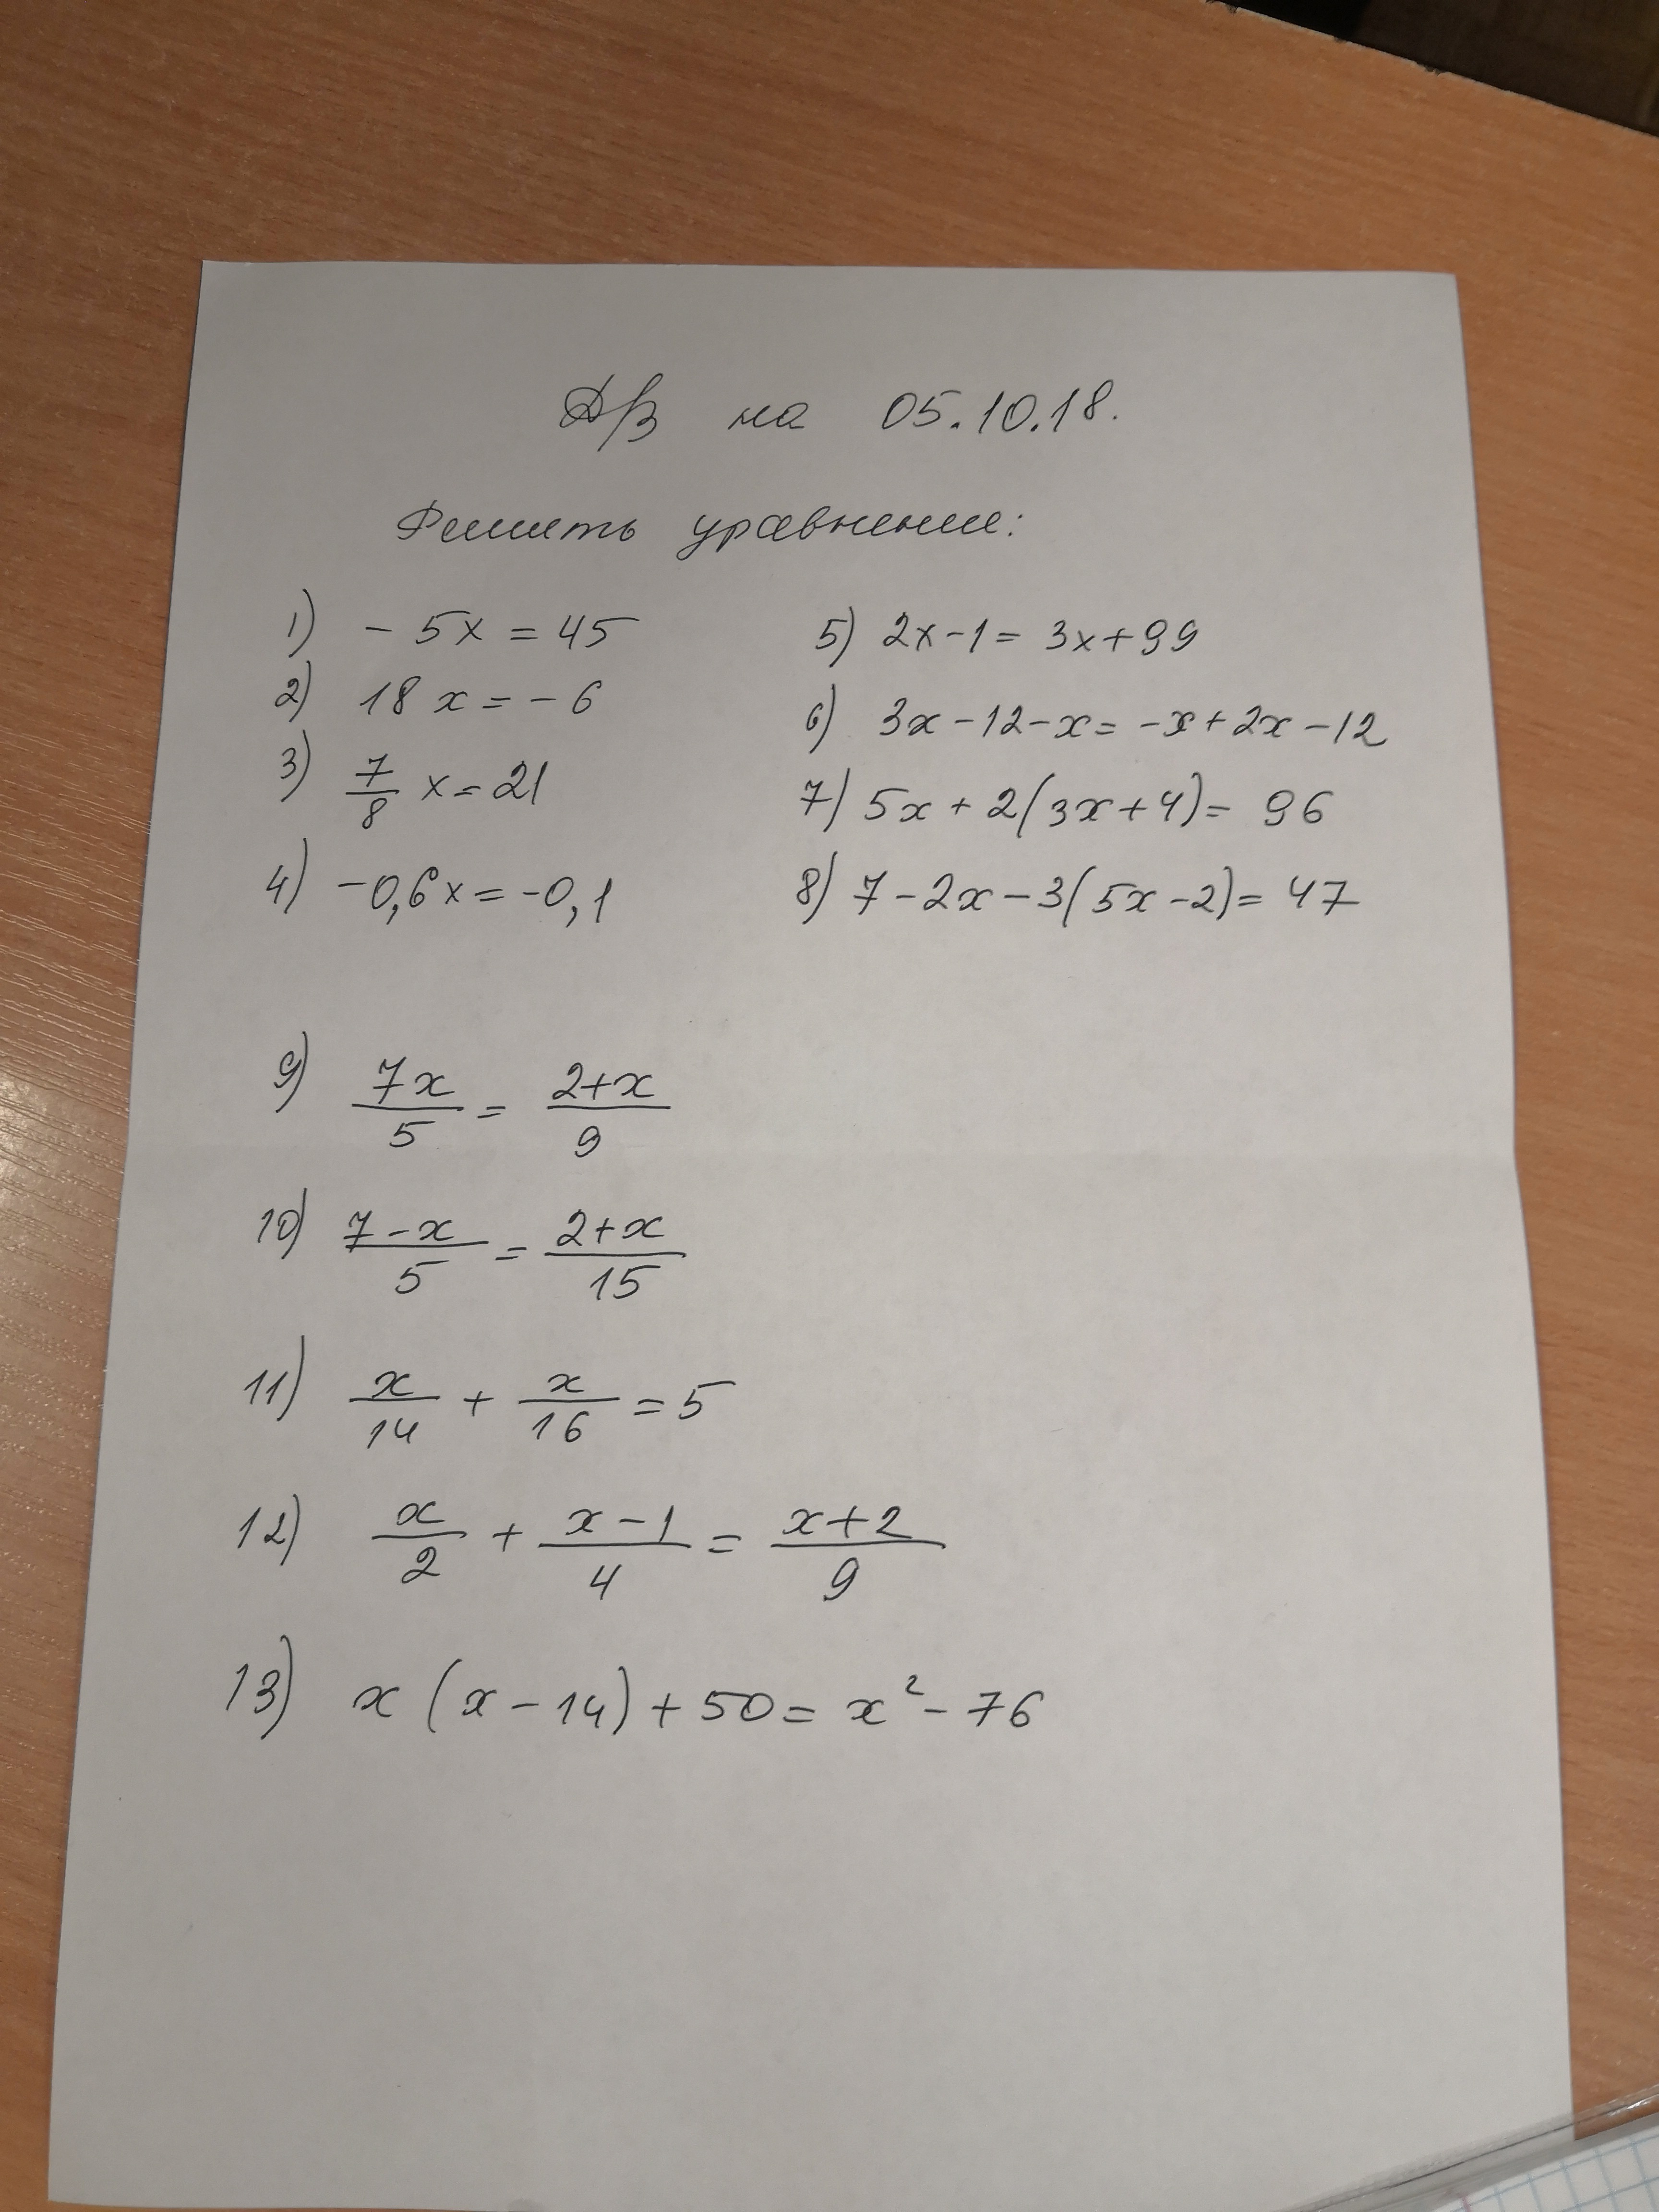 Д/З на 05.10.18.
Решить уравнение:
1) - 5x = 45
2) 18x = - 6
3) 7/8 x = 21
4) -0,6x = -0,1
5) 2x - 1 = 3x + 99
6) 3x - 12 - x = -x + 2x - 12
7) 5x + 2(3x + 4) = 96
8) 7 - 2x - 3(5x - 2) = 47
9) 7x/5 = 2+x/9
10) 7-x/5 = 2+x/15
11) x/14 + x/16 = 5
12) x/2 + x-1/4 = x+2/9
13) x(x - 14) + 50 = x² - 76